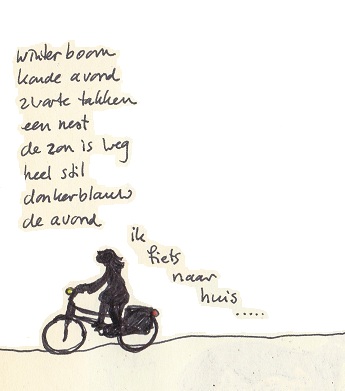 winterboom
koude avond
zwarte takken
een nest
de zon is weg
heel stil
donkerblauw
de avond
ik
fiets
naar
huis .....